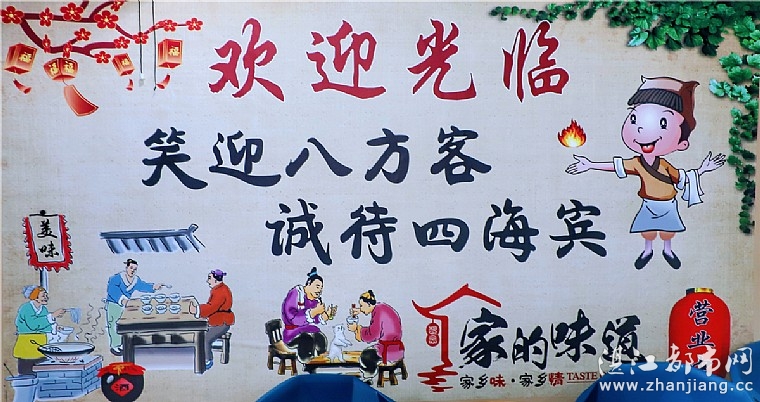 欢迎光临
笑迎八方客
诚待四海宾
美味
家的味道
家乡味·家乡情 TASTE
营业
酒
湛江都市网
www.zhanjiang.cc